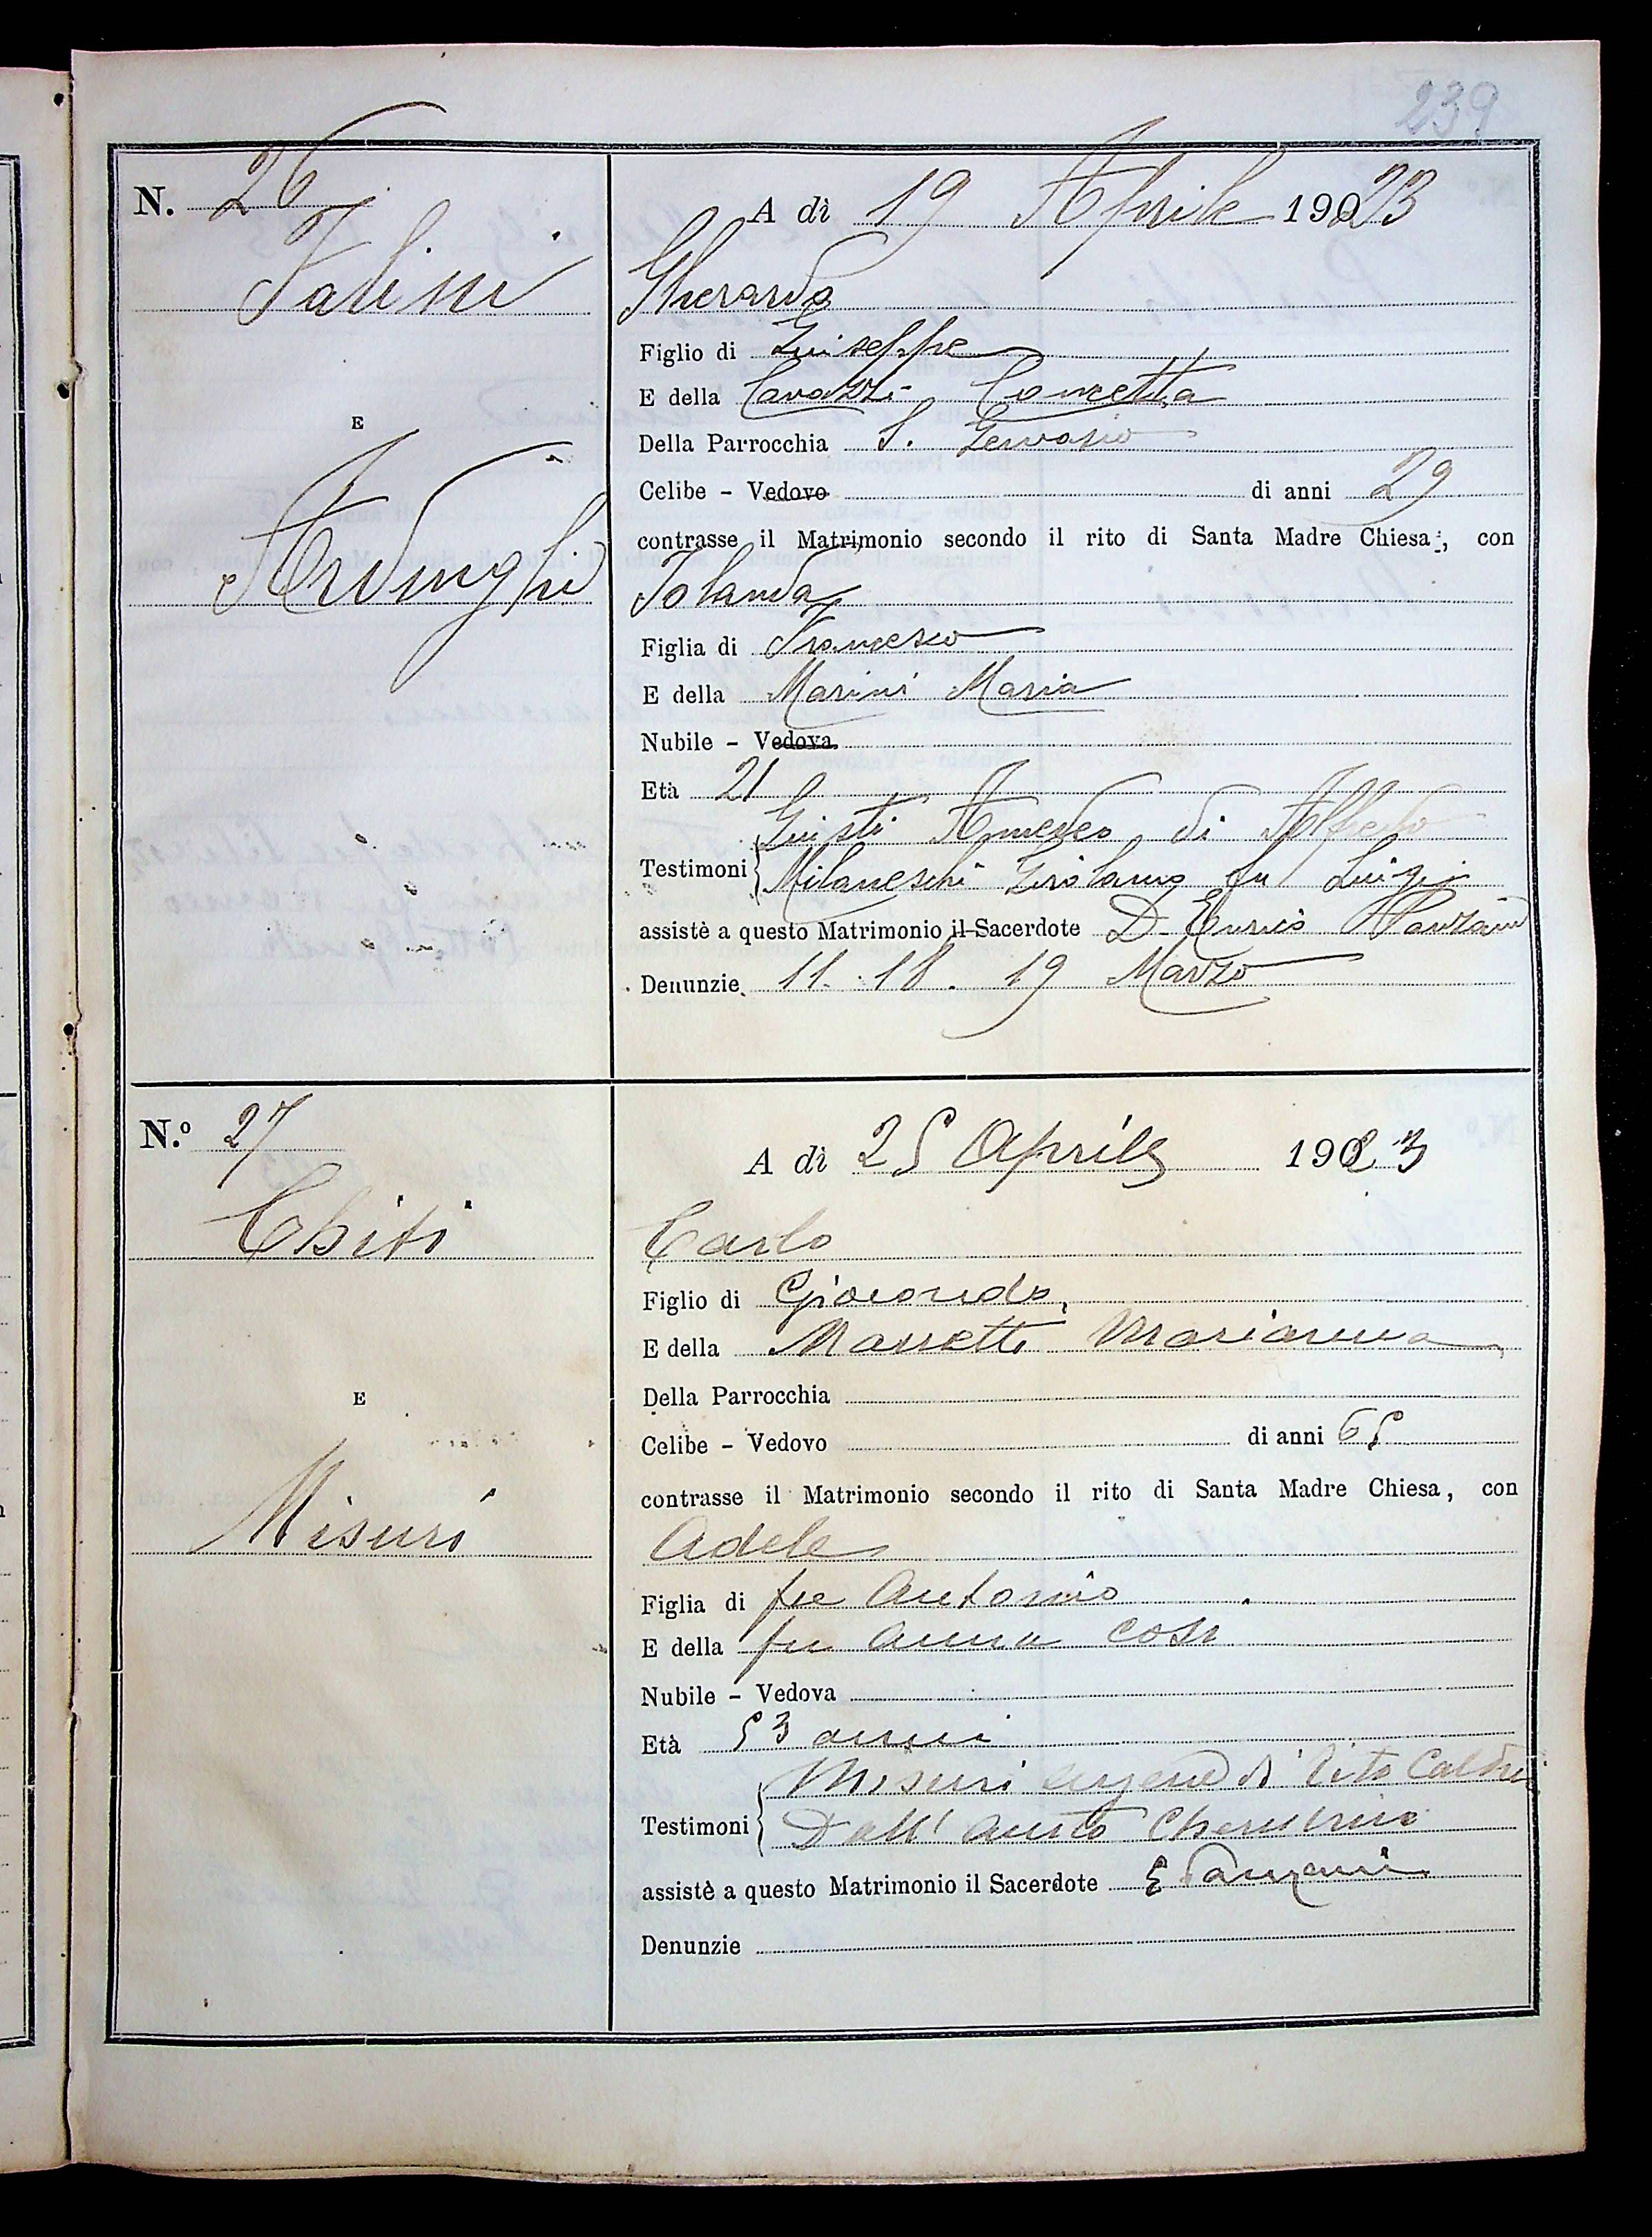 239
N. 26
A dì 19 Aprile 1923
Talini
Gherardo
Figlio di Giuseppe
E della Cavazzi Concetta
E
Della Parrocchia S. Gervasio
Celibe - Vedovo di anni 29
contrasse il Matrimonio secondo il rito di Santa Madre Chiesa, con
Ardinghi
Iolanda
Figlia di Francesco
E della Marini Maria
Nubile - Vedova
Età 21
Giusti Amedeo di Alfredo
Testimoni Milaneschi Girolamo fu Luigi
assistè a questo Matrimonio il Sacerdote D. Enrico Panzani
Denunzie 11. 18. 19 Marzo
N.º 27
A dì 25 Aprile 1923
Chiti
Carlo
Figlio di Giocondo
E della Marianna
E
Della Parrocchia
Celibe - Vedovo di anni 65
contrasse il Matrimonio secondo il rito di Santa Madre Chiesa, con
Misuri
Adele
Figlia di fu Antonio
E della fu Anna Cosi
Nubile - Vedova
Età 53 anni
Misuri di Vito
Testimoni Dall' Cherubino
assistè a questo Matrimonio il Sacerdote E Panzani
Denunzie